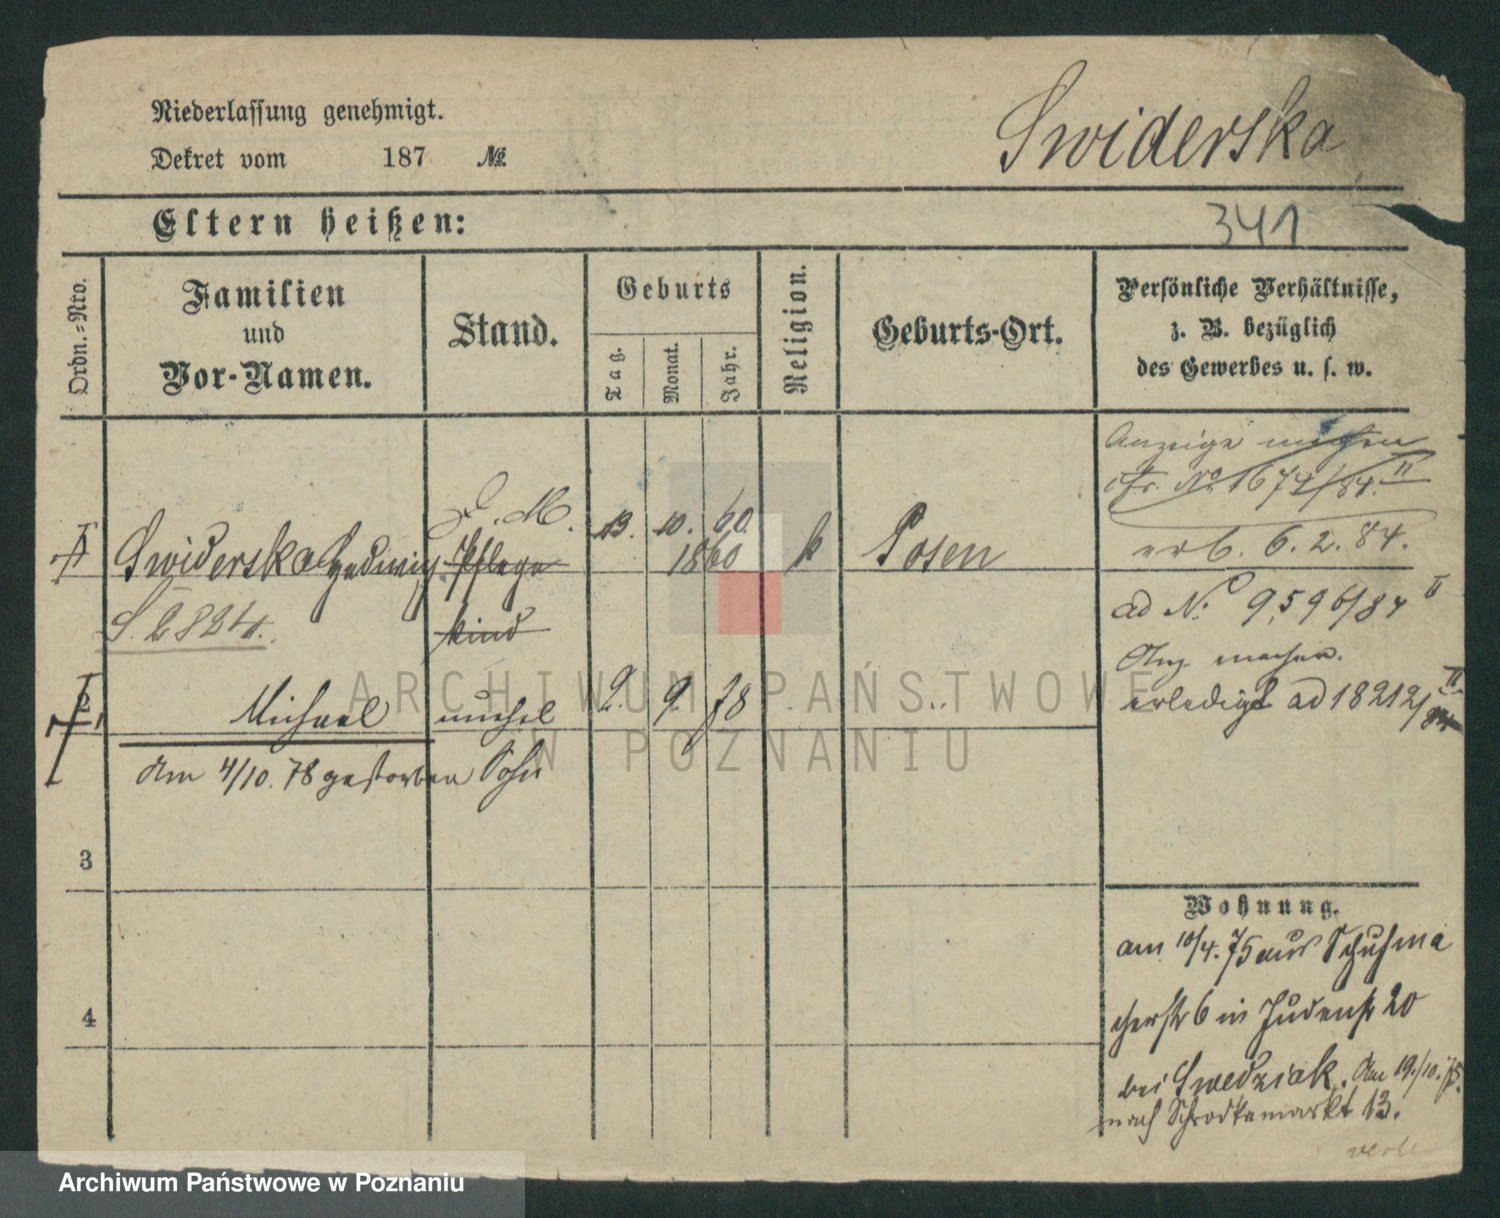 Niederlassung genehmigt.
Dekret vom 187 №
Swiderska
Eltern heißen:
341
Ordn.=Nro.
Familien
und
Vor-Namen.
Stand.
Geburts
Tag.
Monat.
Jahr.
Religion.
Geburts-Ort.
Persönliche Verhältnisse,
z. B. bezüglich
des Gewerbes u. s. w.
Anzeige machen
No 1674/84. II
1 Swiderska Hedwig D. M. 13. 10. 60. k Posen
Pflege 1860
kind
6. 2. 84.
S. 2824.
ad N: 9596/84 II
Anz machen.
2 Michael unehel 2. 9. 78
Sohn
erledigt ad 18212/84 II
am 4/10. 78 gestorben
3
4
Wohnung.
am 10/4. 75 aus Schuhma
cherstr 6 in Judenstr 20
bei Swedziak. Am 19./10. 75.
nach Schrodkamarkt 13.
ARCHIWUM PAŃSTWOWE
W POZNANIU
Archiwum Państwowe w Poznaniu